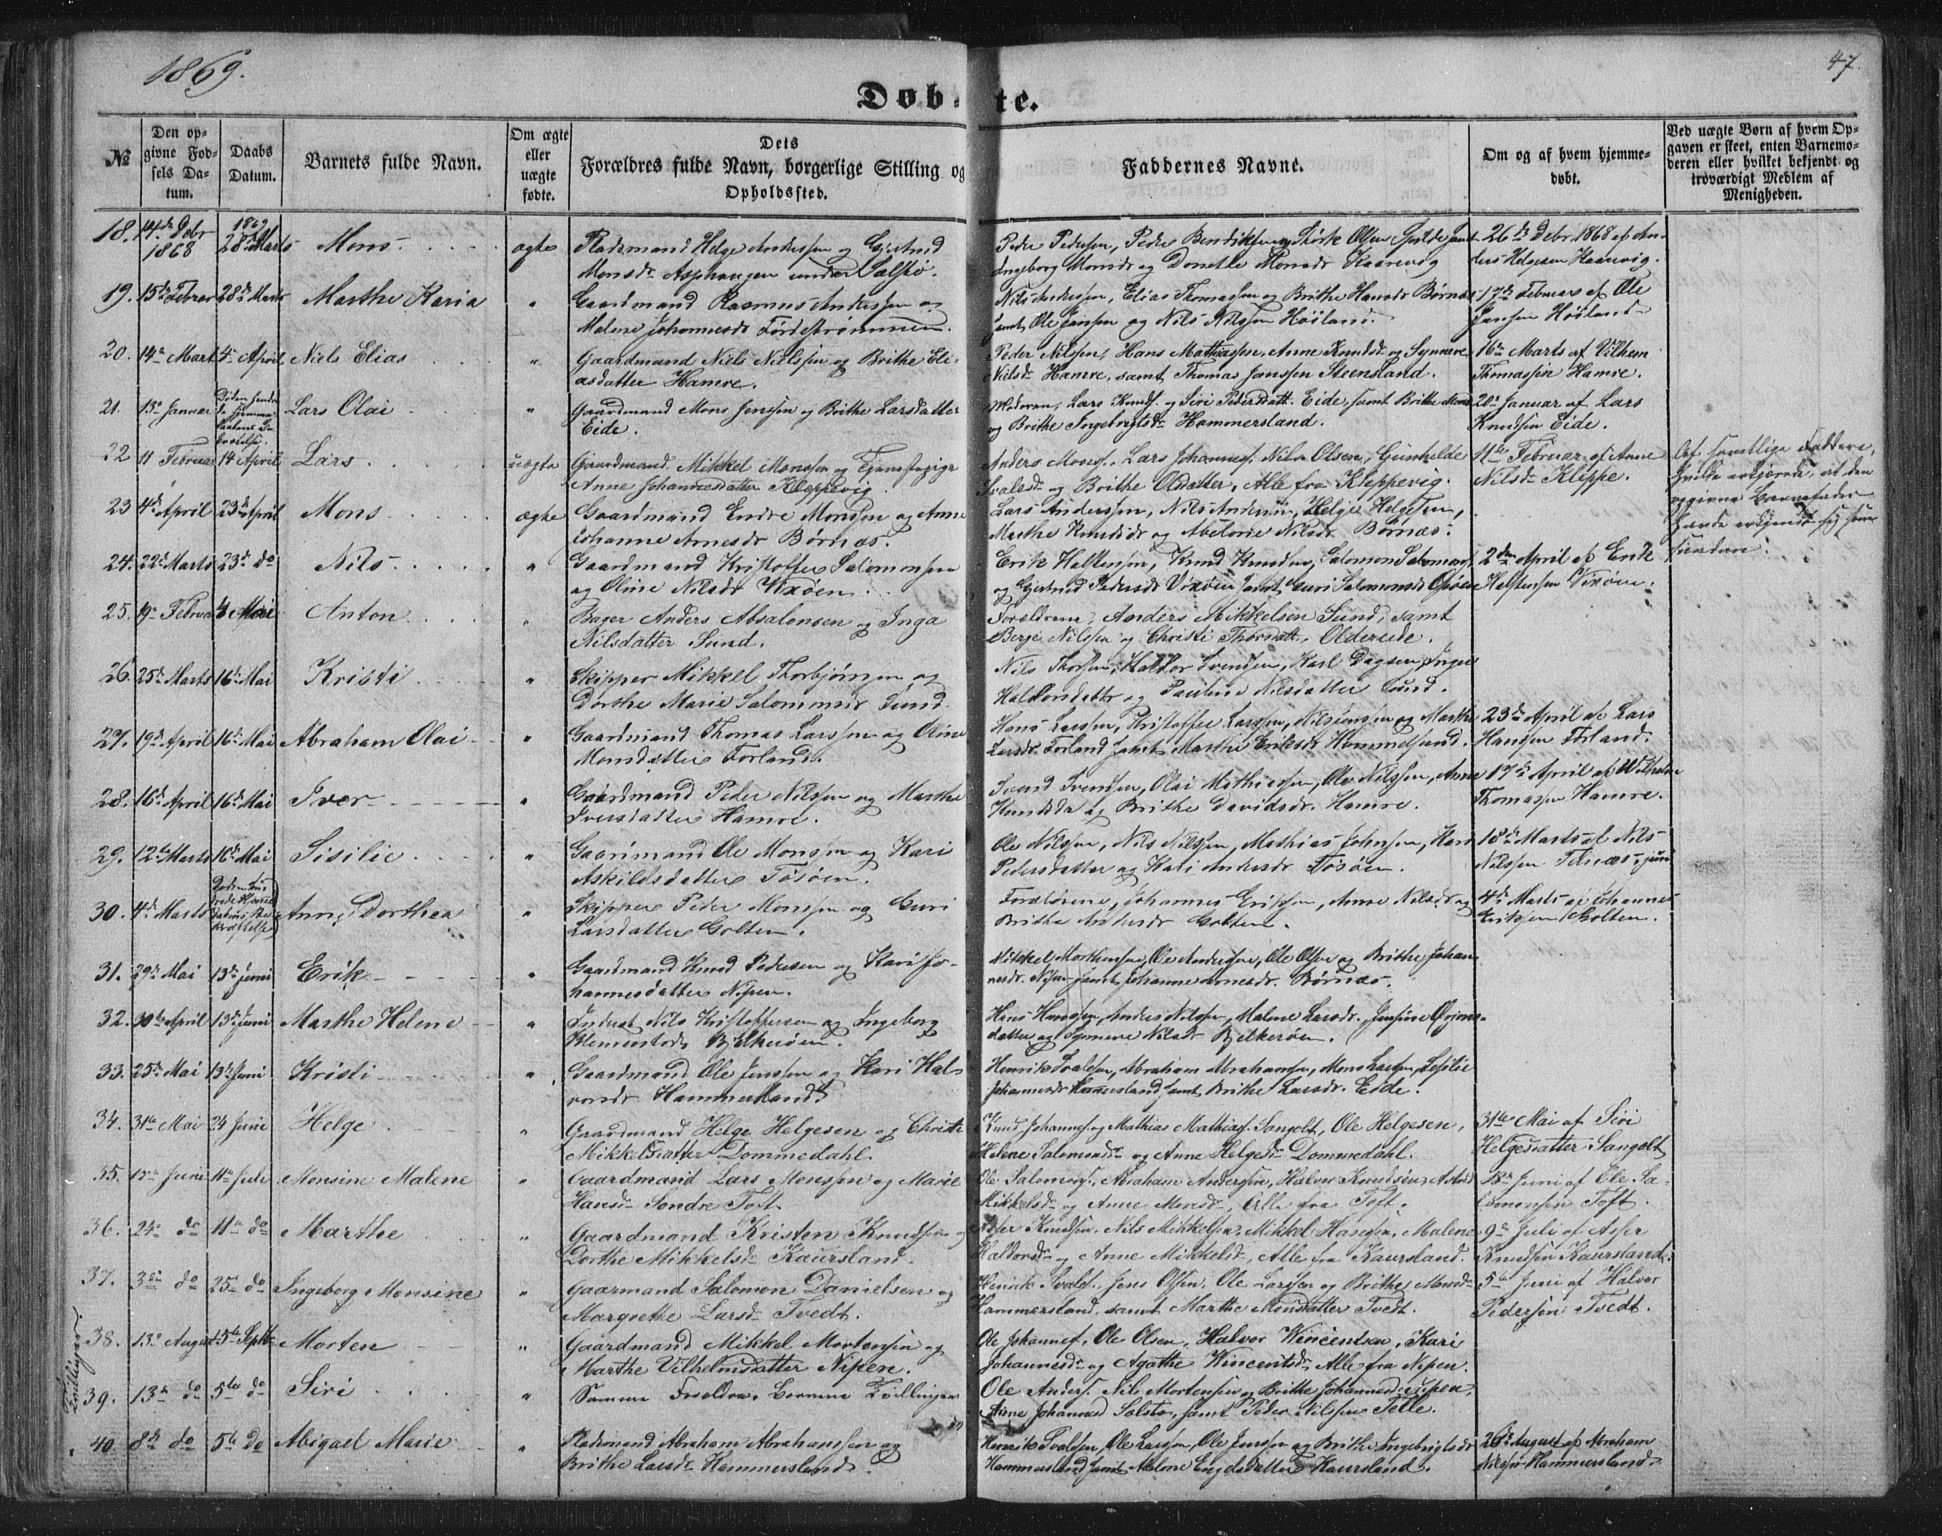 1869.
47.
Døbte.
No
Den opgivne Fødsels Datum.
Daabs Datum.
Barnets fulde Navn.
Om ægte eller uægte fødte.
Dets Forældres fulde Navn, borgerlige Stilling og Opholdssted.
Faddernes Navne.
Om og af hvem hjemmedøbt.
Ved uægte Børn af hvem Opgaven er skeet, enten Barnemoderen eller hvilket bekjendt og troværdigt Medlem af Menigheden.
18. 14de Debr 1868 1869 28de Marts Mons ægte
Pladsmand Helge Andersen og Gjertrud
Monsdr Asphaugen under Solstø.
Peder Pedersen, Peder Bendiksen og Størk Olsen samt
Ingeborg Monsdr og Donette Monsdr Kaarevig
26de Debr. 1868 af An-
ders Helgesen Kaarevig.
19. 15de Februar 28de Marts Marthe Karia "
Gaardmand Rasmus Andersen og
Malene Johannesdr Førdestrømmen.
Nils Andersen, Elias Thomassen og Brithe Hansdr Børnæs
samt Ole Jansen og Nils Nilssen Høiland
17de Februar af Ole
Jansen Høiland
20. 14de Marts 4de April Niels Elias "
Gaardmand Niels Nilssen og Brithe Eli-
asdatter Hamre.
Peder Nilssen, Hans Mathiassen, Anne Knudsdr og Synneve
Nilsdr Hamre, samt Thomas Janssen Steensland.
16de Marts af Vilhem
Thomassen Hamre.
21. 13de Januar Lars Olai "
Gaardmand Mons Jenssen og Brithe Larsdatter
Eide.
Moderen, Lars Knuds. og Siri Pedersdatt. Eide, samt Brithe Monsdr
og Brithe Ingebrigtsdr Hammersland.
20de Januar af Lars
Knudsen Eide.
22 11 Februar 14 April Lars uægte
Gaardmand Mikkel Monssen og Tjenestepige
Anne Johannesdatter Kleppevig
Anders Mons., Lars Johannes., Nils Olsen, Gunhilde
Svalsdr og Brithe Olsdatter, Alle fra Kleppevig.
11te Februar af Anne
Nilsdr Kleppe.
Af samtlige Faddere,
hvilke erklærede, at den
opgivne Barnefader
havde erkjendt sig som
saadan.
23 4de April 23de April Mons ægte
Gaardmand Endre Monssen og Anne
Johanne Arnesdr Børnæs.
Lars Anderssen, Nils Andersen, Helge Helgesen,
Marthe Knudsdr og Abelone Nilsdr Børnæs.
24. 22de Marts 23de do Nils "
Gaardmand Kristoffer Salomonsen
og Oline Nilsdr Vixøen.
Erik Halstensen, Knud Knudsen, Salomon Salomons.
og Gjertrud Pedersdr Vixøen samt Guri Salomonsdr
2den April af Erik
Halstensen Vixøen.
25. 19de Februar 6 Mai Anton "
Bager Anders Absalonsen og Inga
Nilsdatter Sund.
Forældrene, Anders Mikkelsen Sund, samt
Berje Nilssen og Christi Thorsdatt. Oldereide.
26. 25de Marts 16de Mai Kristi "
Skipper Mikkel Thorbjørnsen og
Dorthe Marie Salomonsdr Sund.
Nils Thorsen, Haldor Svendsen, Karl Dagsen, Inger
Haldorsdatter og Pauline Nilsdatter Sund.
27. 19de April 16de Mai Abraham Olai "
Gaardmand Thomas Larssen og Oline
Monsdatter Forland.
Hans Larssen, Kristoffer Larssen, Nils Jensen og Marthe
Larsdr Forland samt Marthe Eriksdr Hummelsund.
23de April af Lars
Hansen Forland.
28. 16de April 16de Mai Iver "
Gaardmand Peder Nilssen og Marthe
Iversdatter Hamre.
Svend Svendsen, Olai Mathiesen, Ole Nilssen, Anne
Knudsdr og Brithe Davidsdr Hamre.
17de April af Wilhelm
Thomassen Hamre.
29. 12te Marts 16de Mai Sisilie "
Gaardmand Ole Monssen og Kari
Askildsdatter Tøsøen.
Ole Nilsen, Nils Nilssen, Mathias Johnsen, Kari
Pedersdatter og Kari Andersdr Tøsøen.
18de Marts af Nils
Nilssen
30. 4de Marts Anne Dorthea "
Skipper Peder Monssen og Guri
Larsdatter Golten.
Forældrene, Johannes Erikssen, Anne Nilsdr og
Brithe Andersdr Golten.
4de Marts af Johannes
Erikssen Golten.
31. 29de Mai 13de Juni Erik "
Gaardmand Knud Pedersen og Kari Jo-
hannesdatter Nipen.
Mikkel Mortensen, Ole Andersen, Ole Olsen og Brithe Johan-
nesdr Nipen samt Johanne Arnesdr. Børnæs.
32. 30te April 13de Juni Marthe Helene "
Inderst Nils Kristoffersen og Ingeborg
Klemetsdr Bjelkerøen.
Hans Hanssen, Anders Nilssen, Malene Larsdr. Jensine Ørjans-
datter og Synneve Nilsdr Bjelkerøen.
33. 25de Mai 13de Juni Kristi "
Gaardmand Ole Jenssen og Kari Hal-
vorsdr Hammersland.
Henrik Svalsen, Abraham Abrahamsen, Mons Larsen, Sesilie
Johannesdr Hammersland samt Brithe Larsdr. Eide.
34. 31te Mai 24 Juni Helge "
Gaardmand Helge Helgesen og Christi
Mikkelsdatter Dommedahl.
Knud Johannes. og Mathias Mathias. Sangolt, Ole Helgesen,
Helene Salomonsdr og Anne Helgesdr Dommedahl.
31te Mai af Siri
Helgesdatter Sangolt
35. Juni 11te Juli Monsine Malene "
Gaardmand Lars Monssen og Marie
Hansdr Søndre Toft.
Ole Salomons., Abraham Anderssen, Halvor Knudsen, Astrid
Mikkelsdr og Anne Monsdr, Alle fra Toft.
Juni af Ole Sa-
lomonsen Toft.
36. 24de do 11te do Marthe "
Gaardmand Kristen Knudssen og
Dorthe Mikkelsdr Kaursland.
Asser Knudsen, Nils Mikkelsen, Mikkel Hansen, Malene
Haldorsdr og Anne Mikkelsdr, Alle fra Kaursland.
9de Juli af Asser
Knudsen Kaursland.
37. 3die do 25de do Ingeborg Monsine "
Gaarmand Salomon Danielsen og
Margrethe Larsdr Tvedt.
Henrik Svals., Jens Olsen, Ole Larssen og Brithe Monsdr
Hammersland, samt Marthe Monsdatter Tvedt.
5te Juni af Halvor
Pedersen Tvedt.
38. 13de August 5te Septbr Morten "
Gaardmand Mikkel Mortensen og
Marthe Vilhelmsdatter Nipen.
Ole Johannes., Ole Olsen, Halvor Wincentsen, Kari
Johannesdr og Agathe Wincentsdr Alle fra Nipen.
Tvillinger
39. 13de do 5te do Siri "
Samme Forældre. Børnene Tvillinger
Ole Anders., Nils Mortensen og Brithe Johannesdr Nipen,
Anne Johannesd Solstø, samt Peder Nilssen Telle.
40. 8de do 5te do Abigael Marie "
Pladsmand Abraham Abrahamssen og
Brithe Larsdr Hammersland.
Henrik Svalssen, Ole Larssen, Ole Jenssen og Brithe Ingebrigtsdr
Hammersland samt Malene Kaursland.
26de August af Abraham
Nilssen Hammersland.